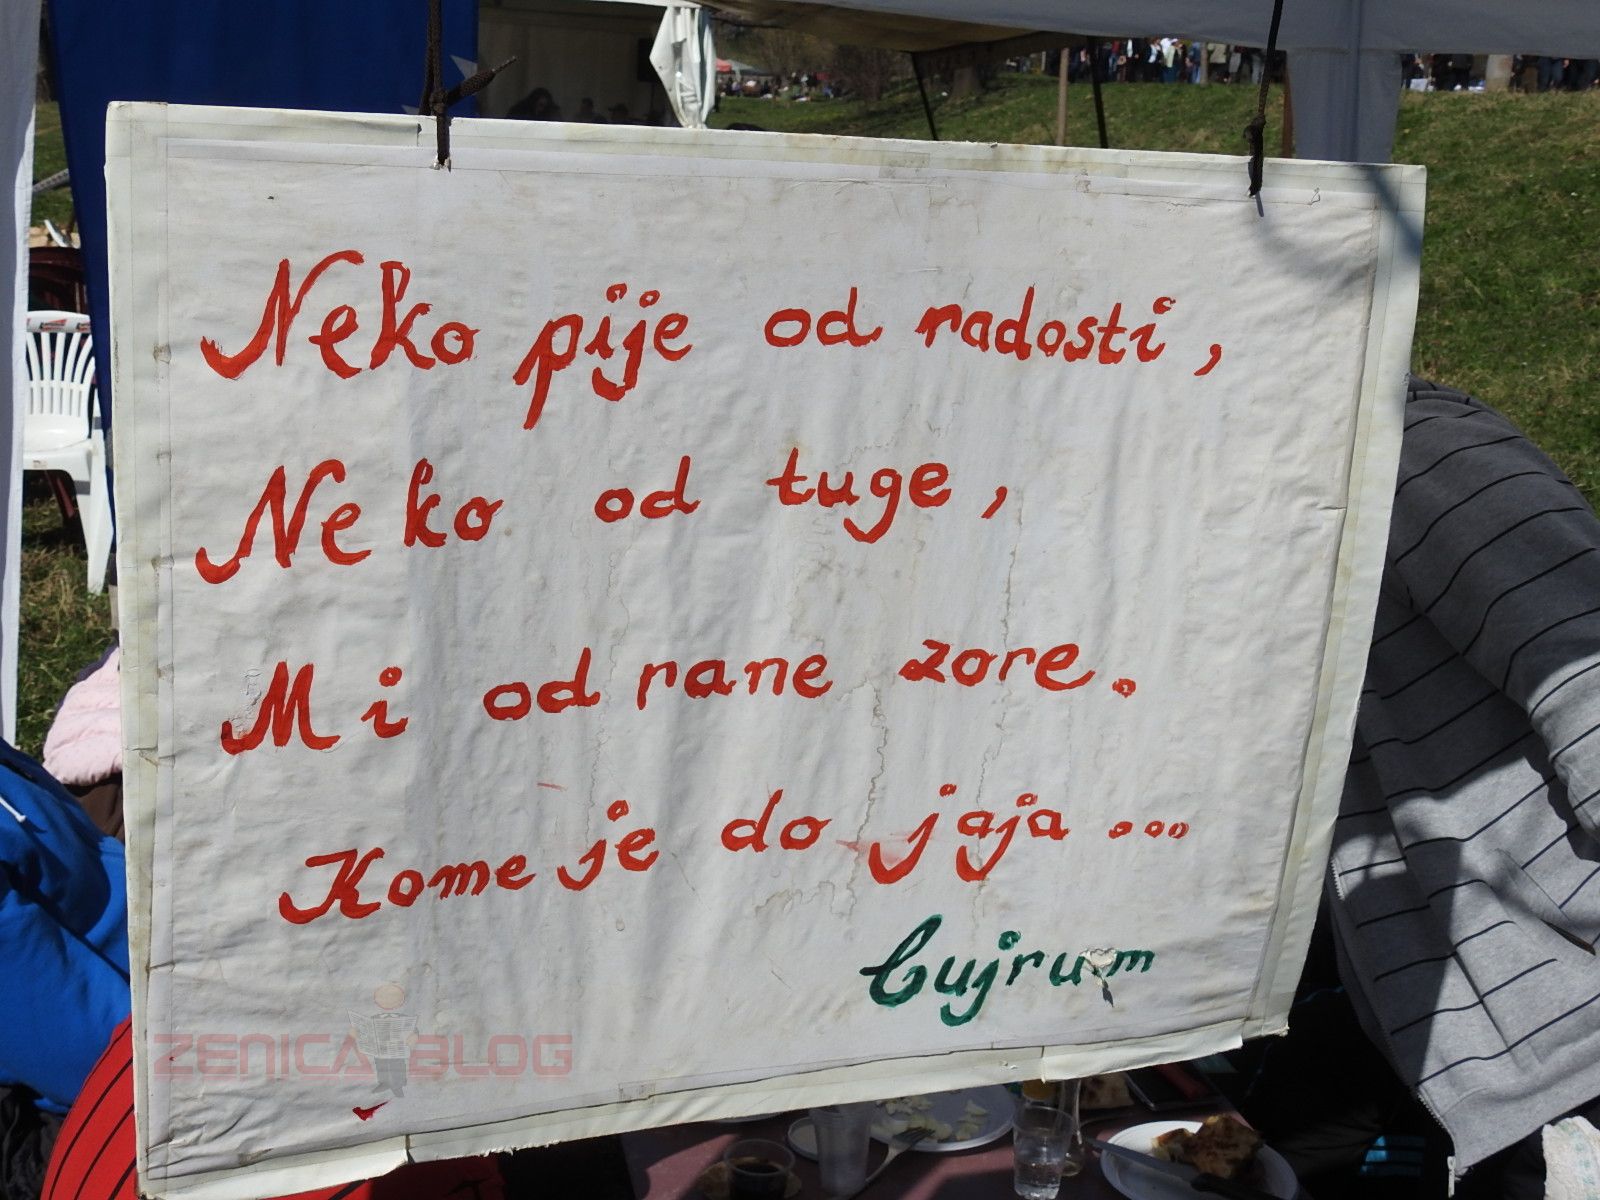 Neko pije od radosti,
Neko od tuge,
Mi od rane zore.
Kome je do jaja...
Čujrum
ZENICA BLOG